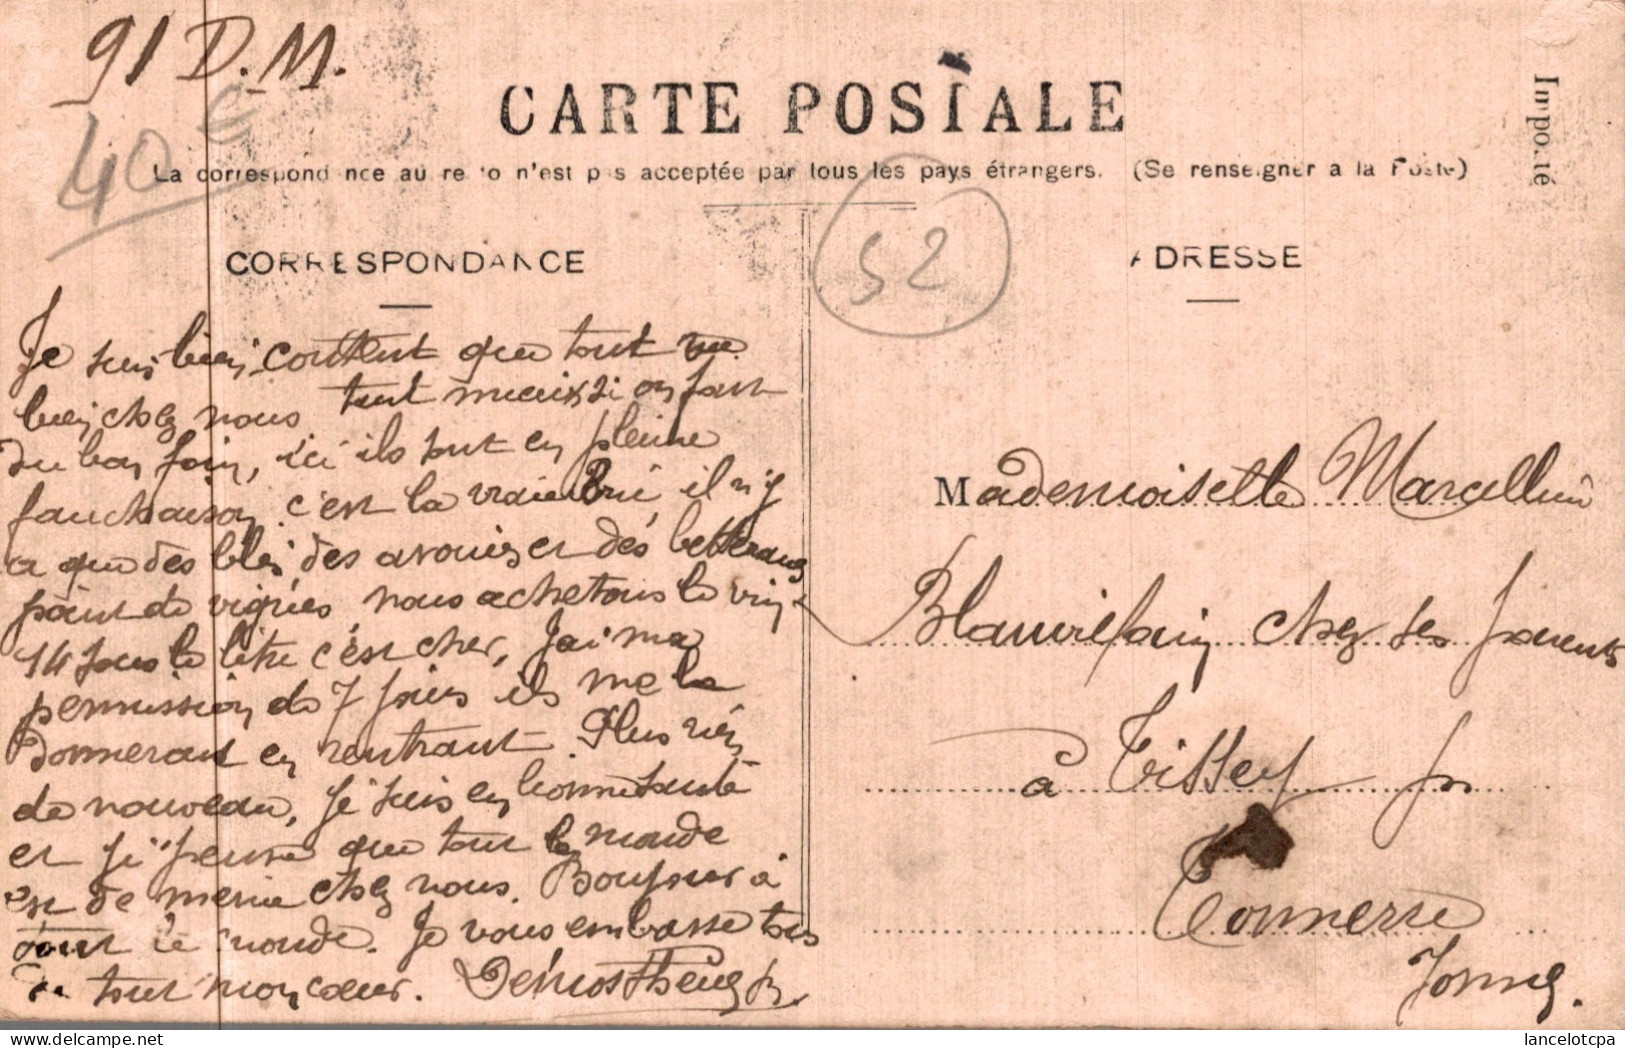 91 D.M.
40 €
CARTE POSTALE
Importé
La correspondance au recto n'est pas acceptée par tous les pays étrangers. (Se renseigner à la Poste)
52
CORRESPONDANCE
Je suis bien content que tout va
bien chez nous tant mieux si on fait
du bon foin, ici ils sont en pleine
fauchaison c'est la vraie Brie, il n'y
a que des blés des avoines et dés betteraves
point de vignes, nous achetons le vin
14 sous le litre c'est cher, J'ai ma
permission de 7 jours ils me la
donneront en rentrant. Plus rien
de nouveau, je suis en bonne santé
et je pense que tout le monde
est de même chez nous. Bonjour à
tout le monde. Je vous embrasse tous
de tout mon cœur. Démosthène
ADRESSE
Mademoiselle Marcelline
chez ses parents
à Tissey pr
Tonnerre
Yonne.
lancelotcpa